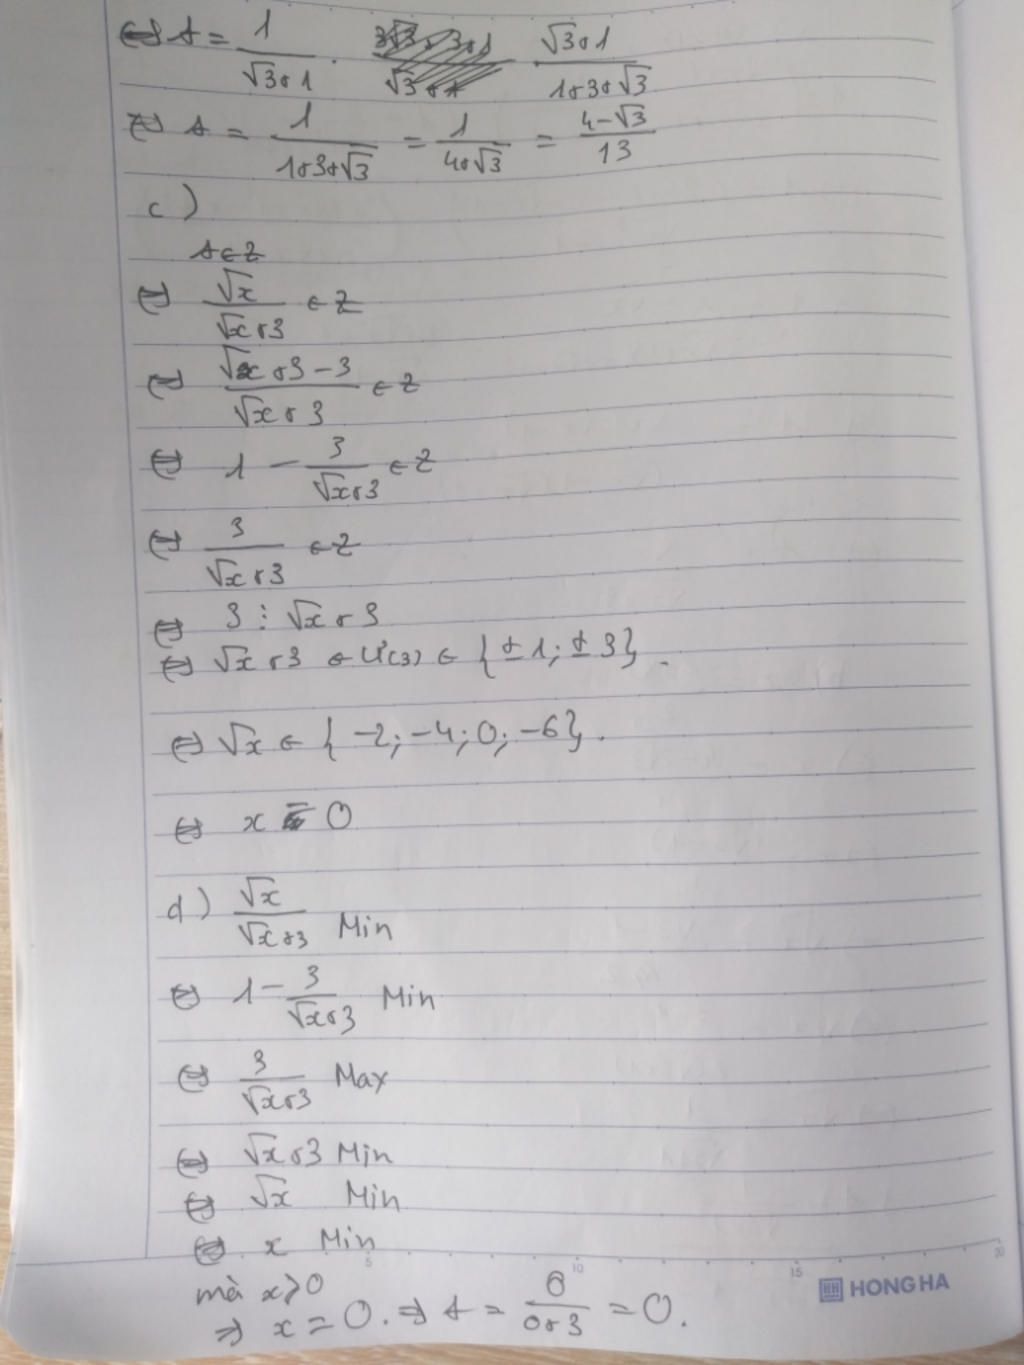 ⇔ A = 1/(√3+1) · (√3+1)/(1+3+√3)
⇔ A = 1/(1+3+√3) = 1/(4+√3) = (4-√3)/13
c)
A∈Z
⇔ √x/(√x+3) ∈ Z
⇔ (√x+3-3)/(√x+3) ∈ Z
⇔ 1 - 3/(√x+3) ∈ Z
⇔ 3/(√x+3) ∈ Z
⇔ 3 ⋮ √x+3
⇔ √x+3 ∈ Ư(3) ∈ {±1; ±3}.
⇔ √x ∈ {-2; -4; 0; -6}.
⇔ x = 0
d) √x/(√x+3) Min
⇔ 1 - 3/(√x+3) Min
⇔ 3/(√x+3) Max
⇔ √x+3 Min
⇔ √x Min
⇔ x Min
mà x⩾0
⇒ x = 0. ⇒ A = 0/(0+3) = 0.
5 10 15 20
HH HONG HA